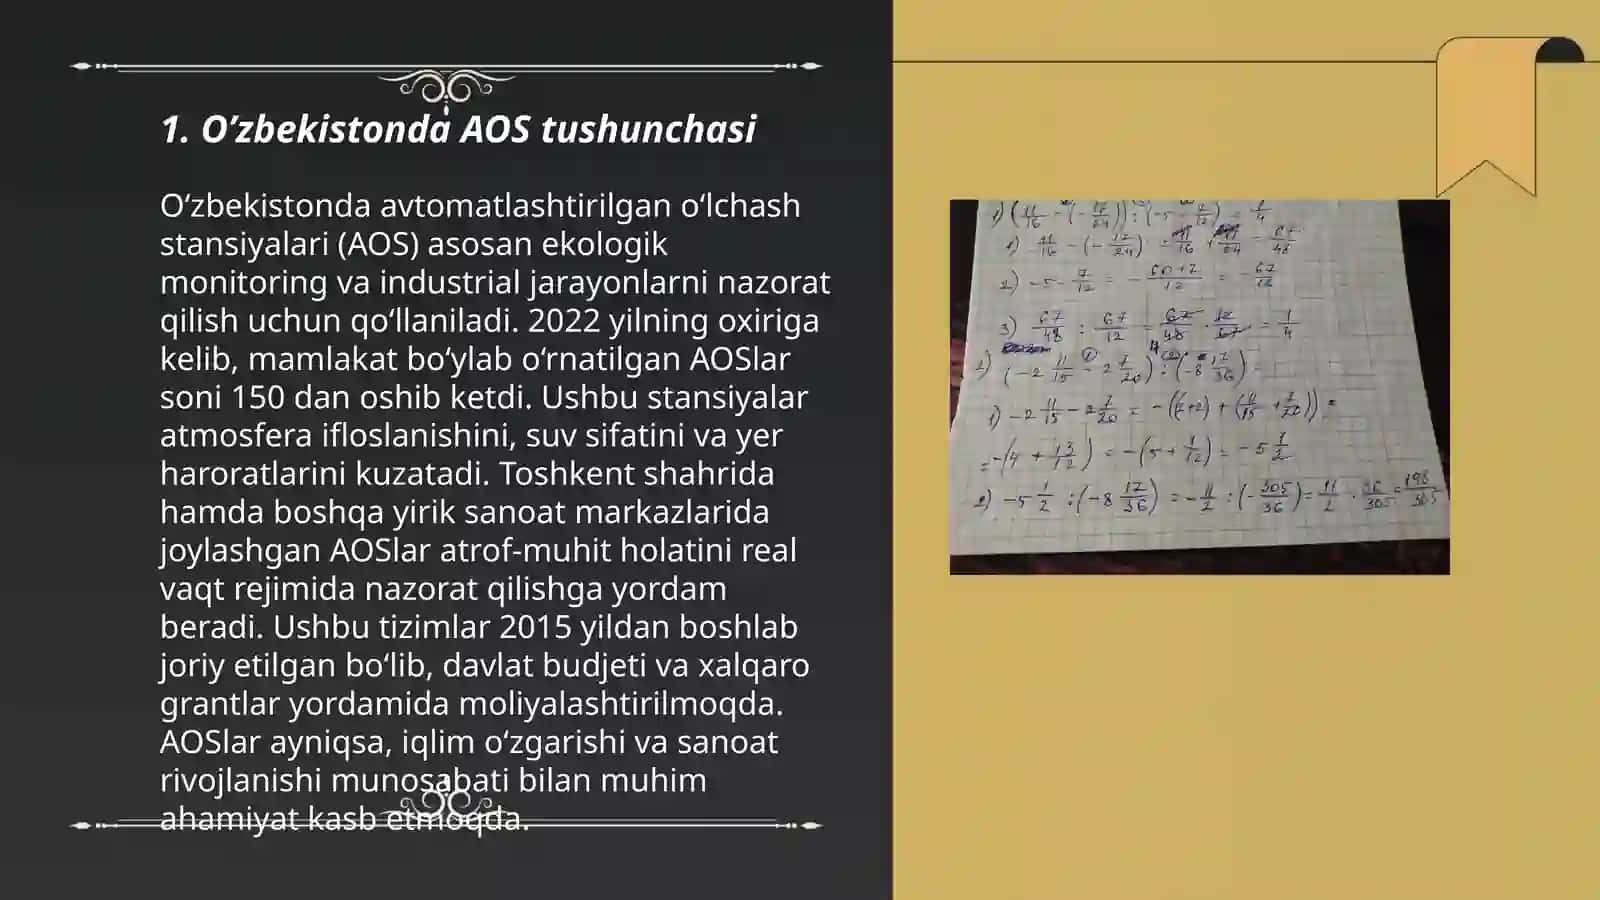 1. O’zbekistonda AOS tushunchasi
O‘zbekistonda avtomatlashtirilgan o‘lchash
stansiyalari (AOS) asosan ekologik
monitoring va industrial jarayonlarni nazorat
qilish uchun qo‘llaniladi. 2022 yilning oxiriga
kelib, mamlakat bo‘ylab o‘rnatilgan AOSlar
soni 150 dan oshib ketdi. Ushbu stansiyalar
atmosfera ifloslanishini, suv sifatini va yer
haroratlarini kuzatadi. Toshkent shahrida
hamda boshqa yirik sanoat markazlarida
joylashgan AOSlar atrof-muhit holatini real
vaqt rejimida nazorat qilishga yordam
beradi. Ushbu tizimlar 2015 yildan boshlab
joriy etilgan bo‘lib, davlat budjeti va xalqaro
grantlar yordamida moliyalashtirilmoqda.
AOSlar ayniqsa, iqlim o‘zgarishi va sanoat
rivojlanishi munosabati bilan muhim
ahamiyat kasb etmoqda.
2) -5 - 7/12 = - (60+7)/12 = - 67/12
3) 67/48 : 67/12 = 67/48 · 12/67 = 1/4
= -(4 + 13/12) = -(5 + 1/12) = -5 1/2
2) -5 1/2 : (-8 17/36) = - 11/2 : (- 305/36) = 11/2 · 36/305 = 198/305